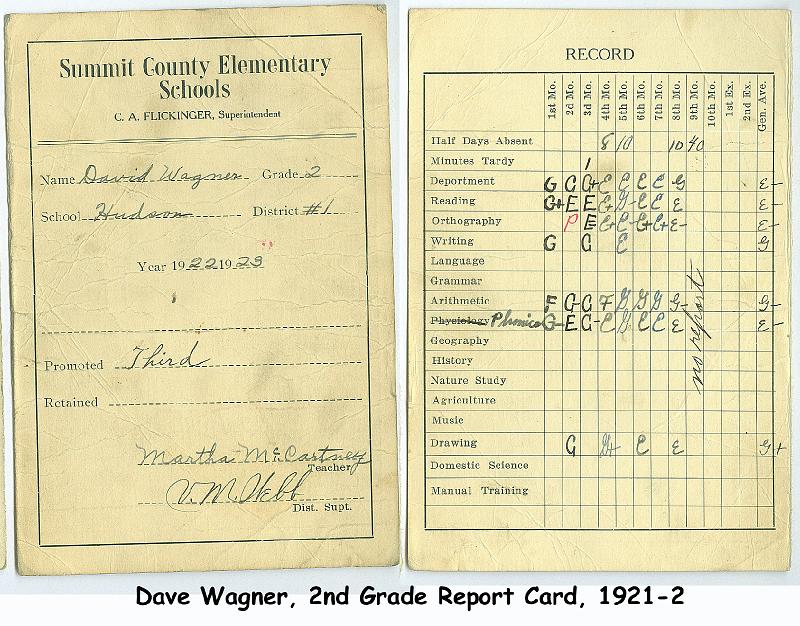 Summit County Elementary
Schools
C. A. FLICKINGER, Superintendent
Name David Wagner Grade 2
School Hudson District #1
Year 1922 1923
Promoted Third
Retained
Martha McCartney
Teacher
V. M. Webb
Dist. Supt.
RECORD
1st Mo. 2d Mo. 3d Mo. 4th Mo. 5th Mo. 6th Mo. 7th Mo. 8th Mo. 9th Mo. 10th Mo. 1st Ex. 2nd Ex. Gen. Ave.
Half Days Absent 8 10 10 40
Minutes Tardy 1
Deportment G G G+ E E E E G E-
Reading G+ E E E+ G- E E E E-
Orthography P E E+ E- E+ E+ E- E-
Writing G G E G
Language
Grammar
Arithmetic F G- G F G G G G- G-
Physiology Phonics G- E G- E G E E E E-
Geography
History
Nature Study
Agriculture
Music
Drawing G G+ E E G+
Domestic Science
Manual Training
no report
Dave Wagner, 2nd Grade Report Card, 1921-2